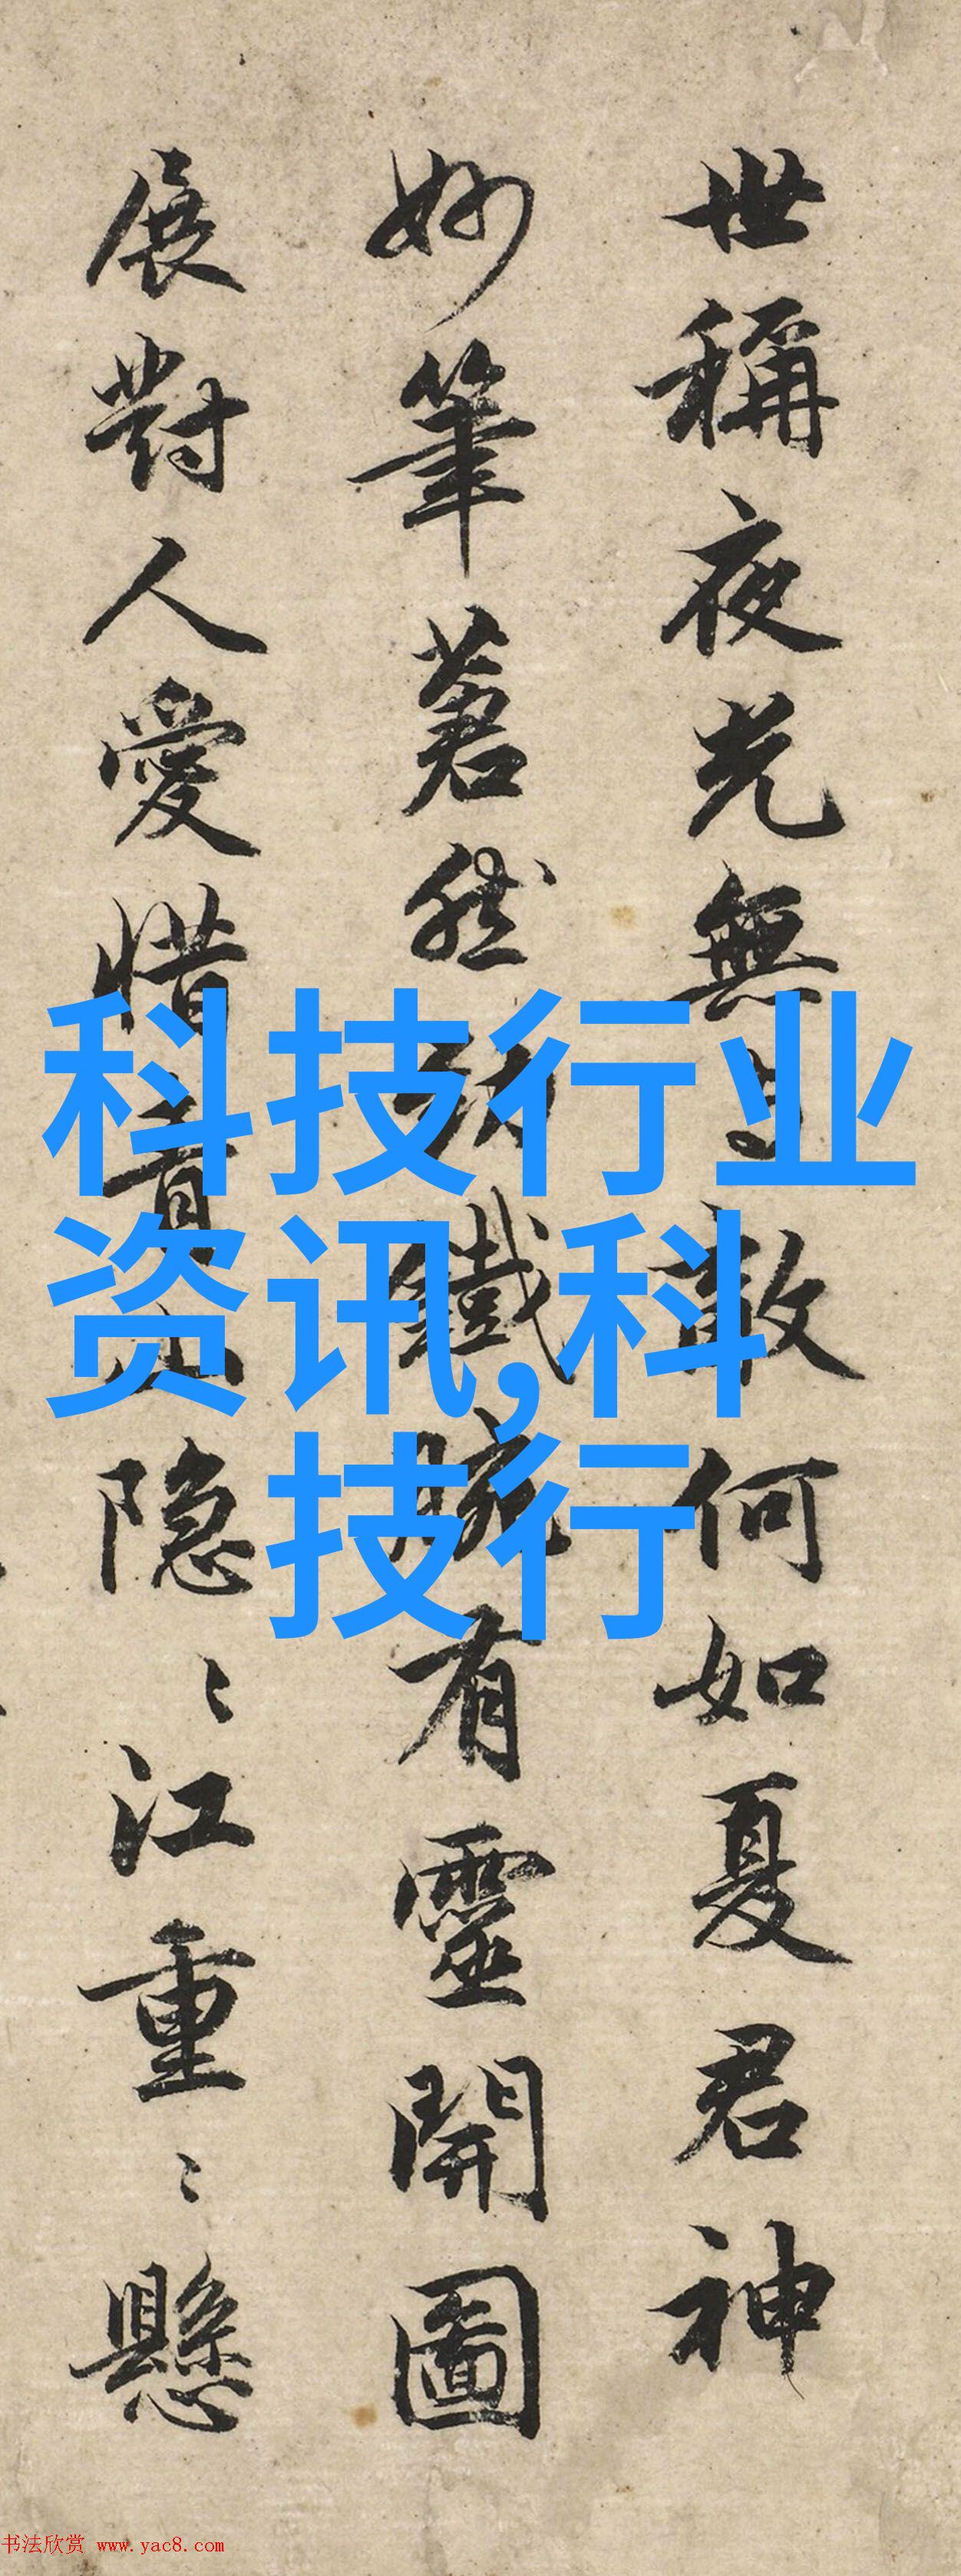 世稱夜光無敵何如夏君神
妙筆然鐵有靈開圖
展對人愛惜隐〻江重〻懸
科技行业
资讯,科
技行
书法欣赏 www.yac8.com